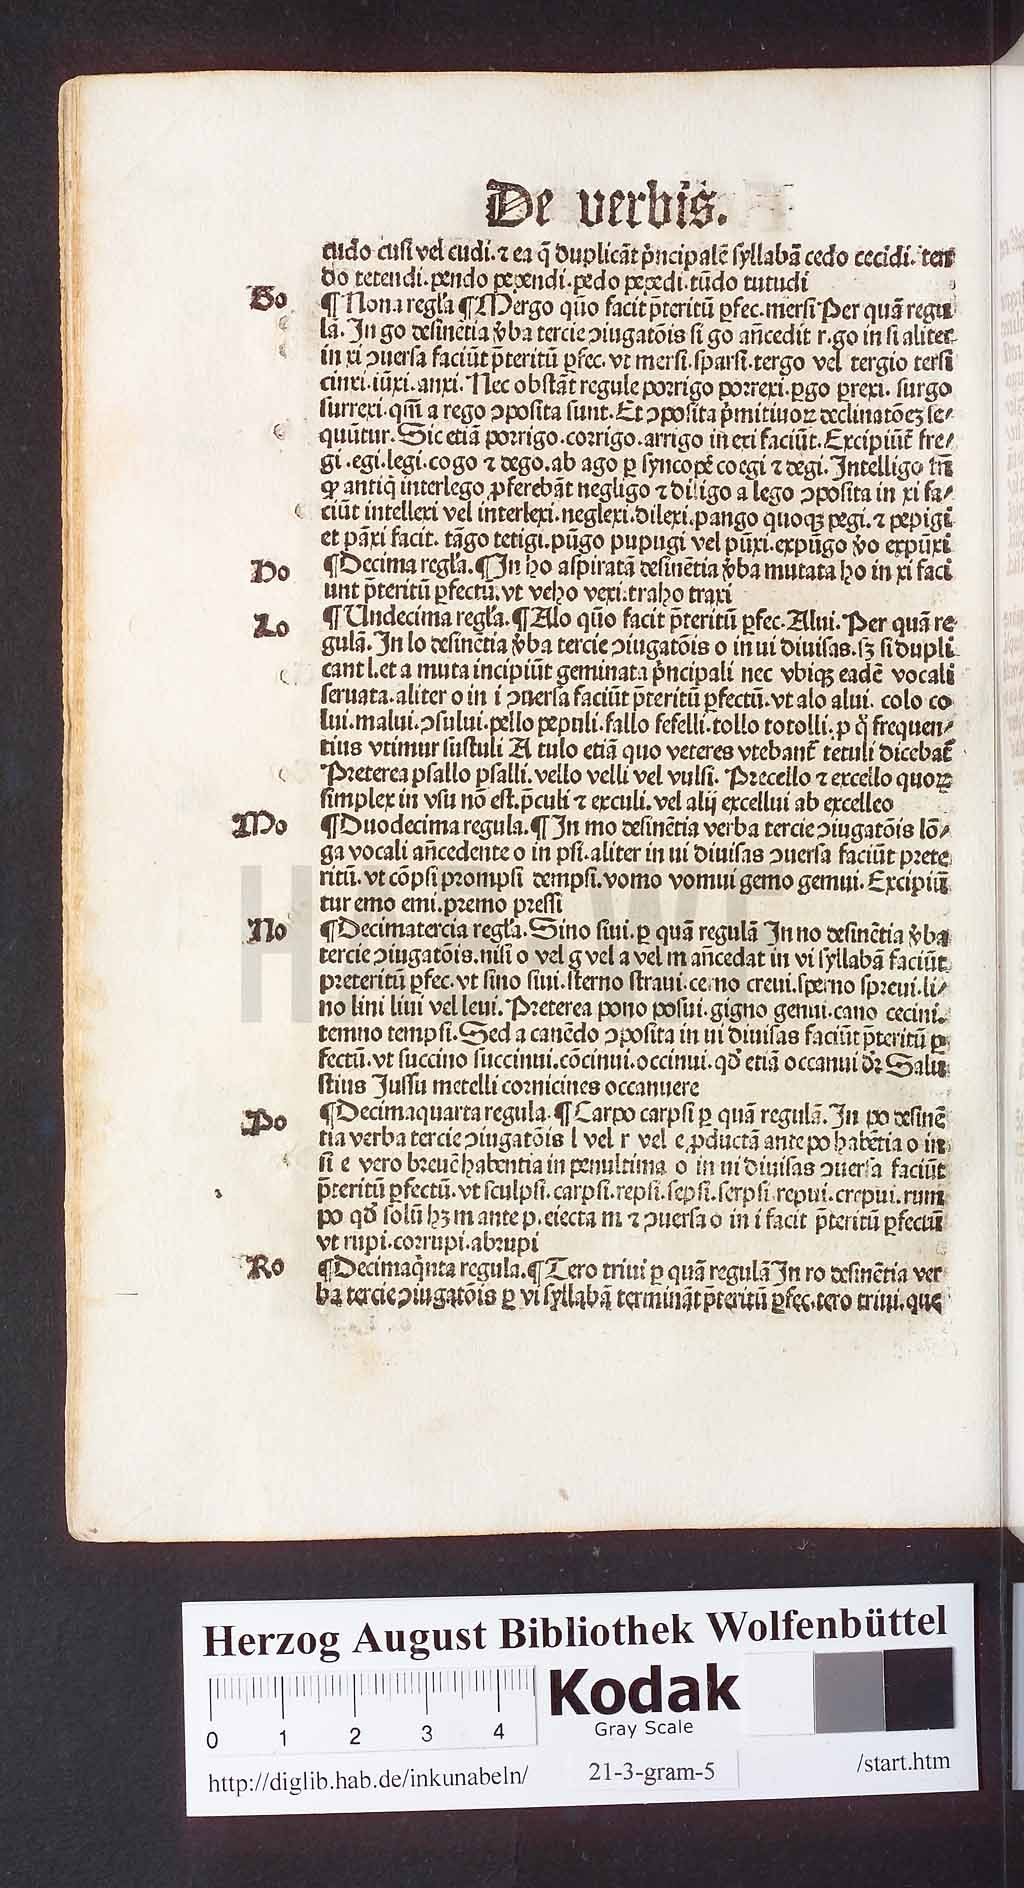 De verbis.
cudo cusi vel cudi. ⁊ ea q̄ duplicāt p̄ncipalē syllabā cedo cecidi. ten
do tetendi. pendo pependi. pedo pepedi. tūdo tutudi
Go
¶ Nona regl'a ¶ Mergo quō facit p̄teritū ꝑfec. mersi Per quā regu
lā. In go desinētia v̄ba tercie ꝯiugatōis si go an̄cedit r. go in si aliter
in xi ꝯuersa faciūt p̄teritū ꝑfec. vt mersi. sparsi. tergo vel tergio tersi
cinxi. iūxi. anxi. Nec obstāt regule porrigo porrexi. ꝑgo ꝑrexi. surgo
surrexi. qm̄ a rego ꝯposita sunt. Et ꝯposita p̄mitiuoꝝ declinatōeꝫ se⸗
quūtur. Sic etiā porrigo. corrigo. arrigo in exi faciūt. Excipiūt̄ fre⸗
gi. egi. legi. cogo ⁊ dego. ab ago ꝑ syncopē coegi ⁊ degi. Intelligo tn̄
ꝙ antiq̄ interlego ꝓferebāt negligo ⁊ diligo a lego ꝯposita in xi fa⸗
ciūt intellexi vel interlexi. neglexi. dilexi. pango quoqꝫ pegi. ⁊ pepigi
et pāxi facit. tāgo tetigi. pūgo pupugi vel pūxi. expūgo v̄o expūxi
Ho
¶ Decima regl'a. ¶ In ho aspiratā desinētia v̄ba mutata ho in xi faci
unt p̄teritū ꝑfectū. vt veho vexi. traho traxi
Lo
¶ Undecima regl'a. ¶ Alo quō facit p̄teritū ꝑfec. Alui. Per quā re
gulā. In lo desinētia v̄ba tercie ꝯiugatōis o in ui diuisas. sꝫ si dupli
cant l. et a muta incipiūt geminata p̄ncipali nec vbiqꝫ eadē vocali
seruata. aliter o in i ꝯuersa faciūt p̄teritū ꝑfectū. vt alo alui. colo co
lui. malui. ꝯsului. pello pepuli. fallo fefelli. tollo totolli. ꝓ q̊ frequen⸗
tius vtimur sustuli A tulo etiā quo veteres vtebant̄ tetuli dicebāt
Preterea psallo psalli. vello velli vel vulsi. Precello ⁊ excello quoꝝ
simplex in vsu nō est. p̄culi ⁊ exculi. vel alij excellui ab excelleo
Mo
¶ Duodecima regula. ¶ In mo desinētia verba tercie ꝯiugatōis lō⸗
ga vocali an̄cedente o in psi. aliter in ui diuisas ꝯuersa faciūt prete
ritū. vt cōpsi prompsi dempsi. vomo vomui gemo gemui. Excipiū
tur emo emi. premo pressi
No
¶ Decimatercia regl'a. Sino siui. ꝑ quā regulā In no desinētia v̄ba
tercie ꝯiugatōis. nisi o vel g vel a vel m an̄cedat in vi syllabā faciūt
preteritū ꝑfec. vt sino siui. sterno straui. cerno creui. sperno spreui. li⸗
no lini liui vel leui. Preterea pono posui. gigno genui. cano cecini.
temno tempsi. Sed a canēdo ꝯposita in ui diuisas faciūt p̄teritū ꝑ
fectū. vt succino succinui. cōcinui. occinui. qd̄ etiā occanui dr̄ Salu
stius Jussu metelli cornicines occanuere
Po
¶ Decimaquarta regula. ¶ Carpo carpsi ꝑ quā regulā. In po desinē
tia verba tercie ꝯiugatōis l vel r vel e ꝓductā ante po habētia o in
si e vero breuē habentia in penultima o in ui diuisas ꝯuersa faciūt
p̄teritū ꝑfectū. vt sculpsi. carpsi. repsi. sepsi. serpsi. repui. crepui. rum
po qd̄ solū hꝫ m ante p. eiecta m ⁊ ꝯuersa o in i facit p̄teritū ꝑfectū
vt rupi. corrupi. abrupi
Ro
¶ Decimaq̄nta regula. ¶ Tero triui ꝑ quā regulā In ro desinētia ver
ba tercie ꝯiugatōis ꝑ vi syllabā termināt p̄teritū ꝑfec. tero triui. que
Herzog August Bibliothek Wolfenbüttel
Kodak
Gray Scale
0 1 2 3 4
http://diglib.hab.de/inkunabeln/ 21-3-gram-5 /start.htm